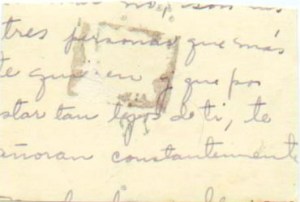 son
tres personas que más
te quieren y que por
star tan lejos de ti, te
añoran constantemente